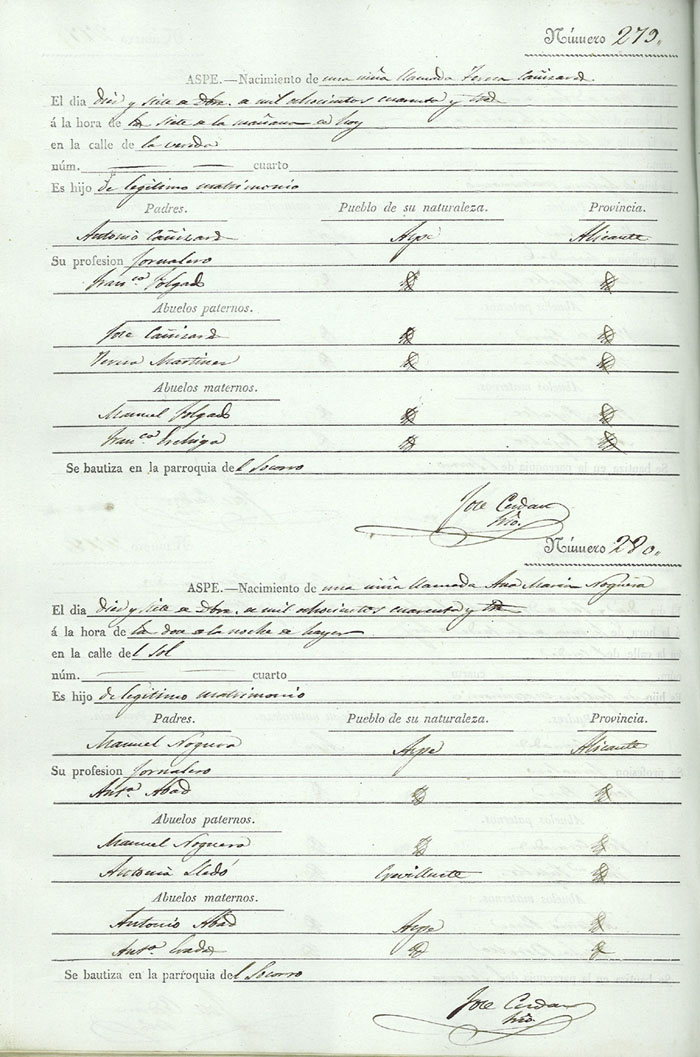 Número 279.
ASPE.—Nacimiento de una niña llamada Teresa Cañizares
El dia diez y siete de Dbre. de mil ochocientos cuarenta y tres
á la hora de las siete de la mañana de hoy
en la calle de la vereda
núm. cuarto
Es hijo de legitimo matrimonio
Padres. Pueblo de su naturaleza. Provincia.
Antonio Cañizares Aspe Alicante
Su profesion Jornalero
Franca
Abuelos paternos.
Jose Cañizares
Teresa Martinez
Abuelos maternos.
Manuel
Franca
Se bautiza en la parroquia del Socorro
Jose Cerdan
Número 280.
ASPE.—Nacimiento de una niña llamada Ana Maria Noguera
El dia diez y siete de Dbre. de mil ochocientos cuarenta y tres
á la hora de las doce de la noche de hayer
en la calle del Sol
núm. cuarto
Es hijo de legitimo matrimonio
Padres. Pueblo de su naturaleza. Provincia.
Manuel Noguera Aspe Alicante
Su profesion Jornalero
Anta. Abad
Abuelos paternos.
Manuel Noguera
Antonia Lledó Crevillente
Abuelos maternos.
Antonio Abad Aspe
Anta.
Se bautiza en la parroquia del Socorro
Jose Cerdan